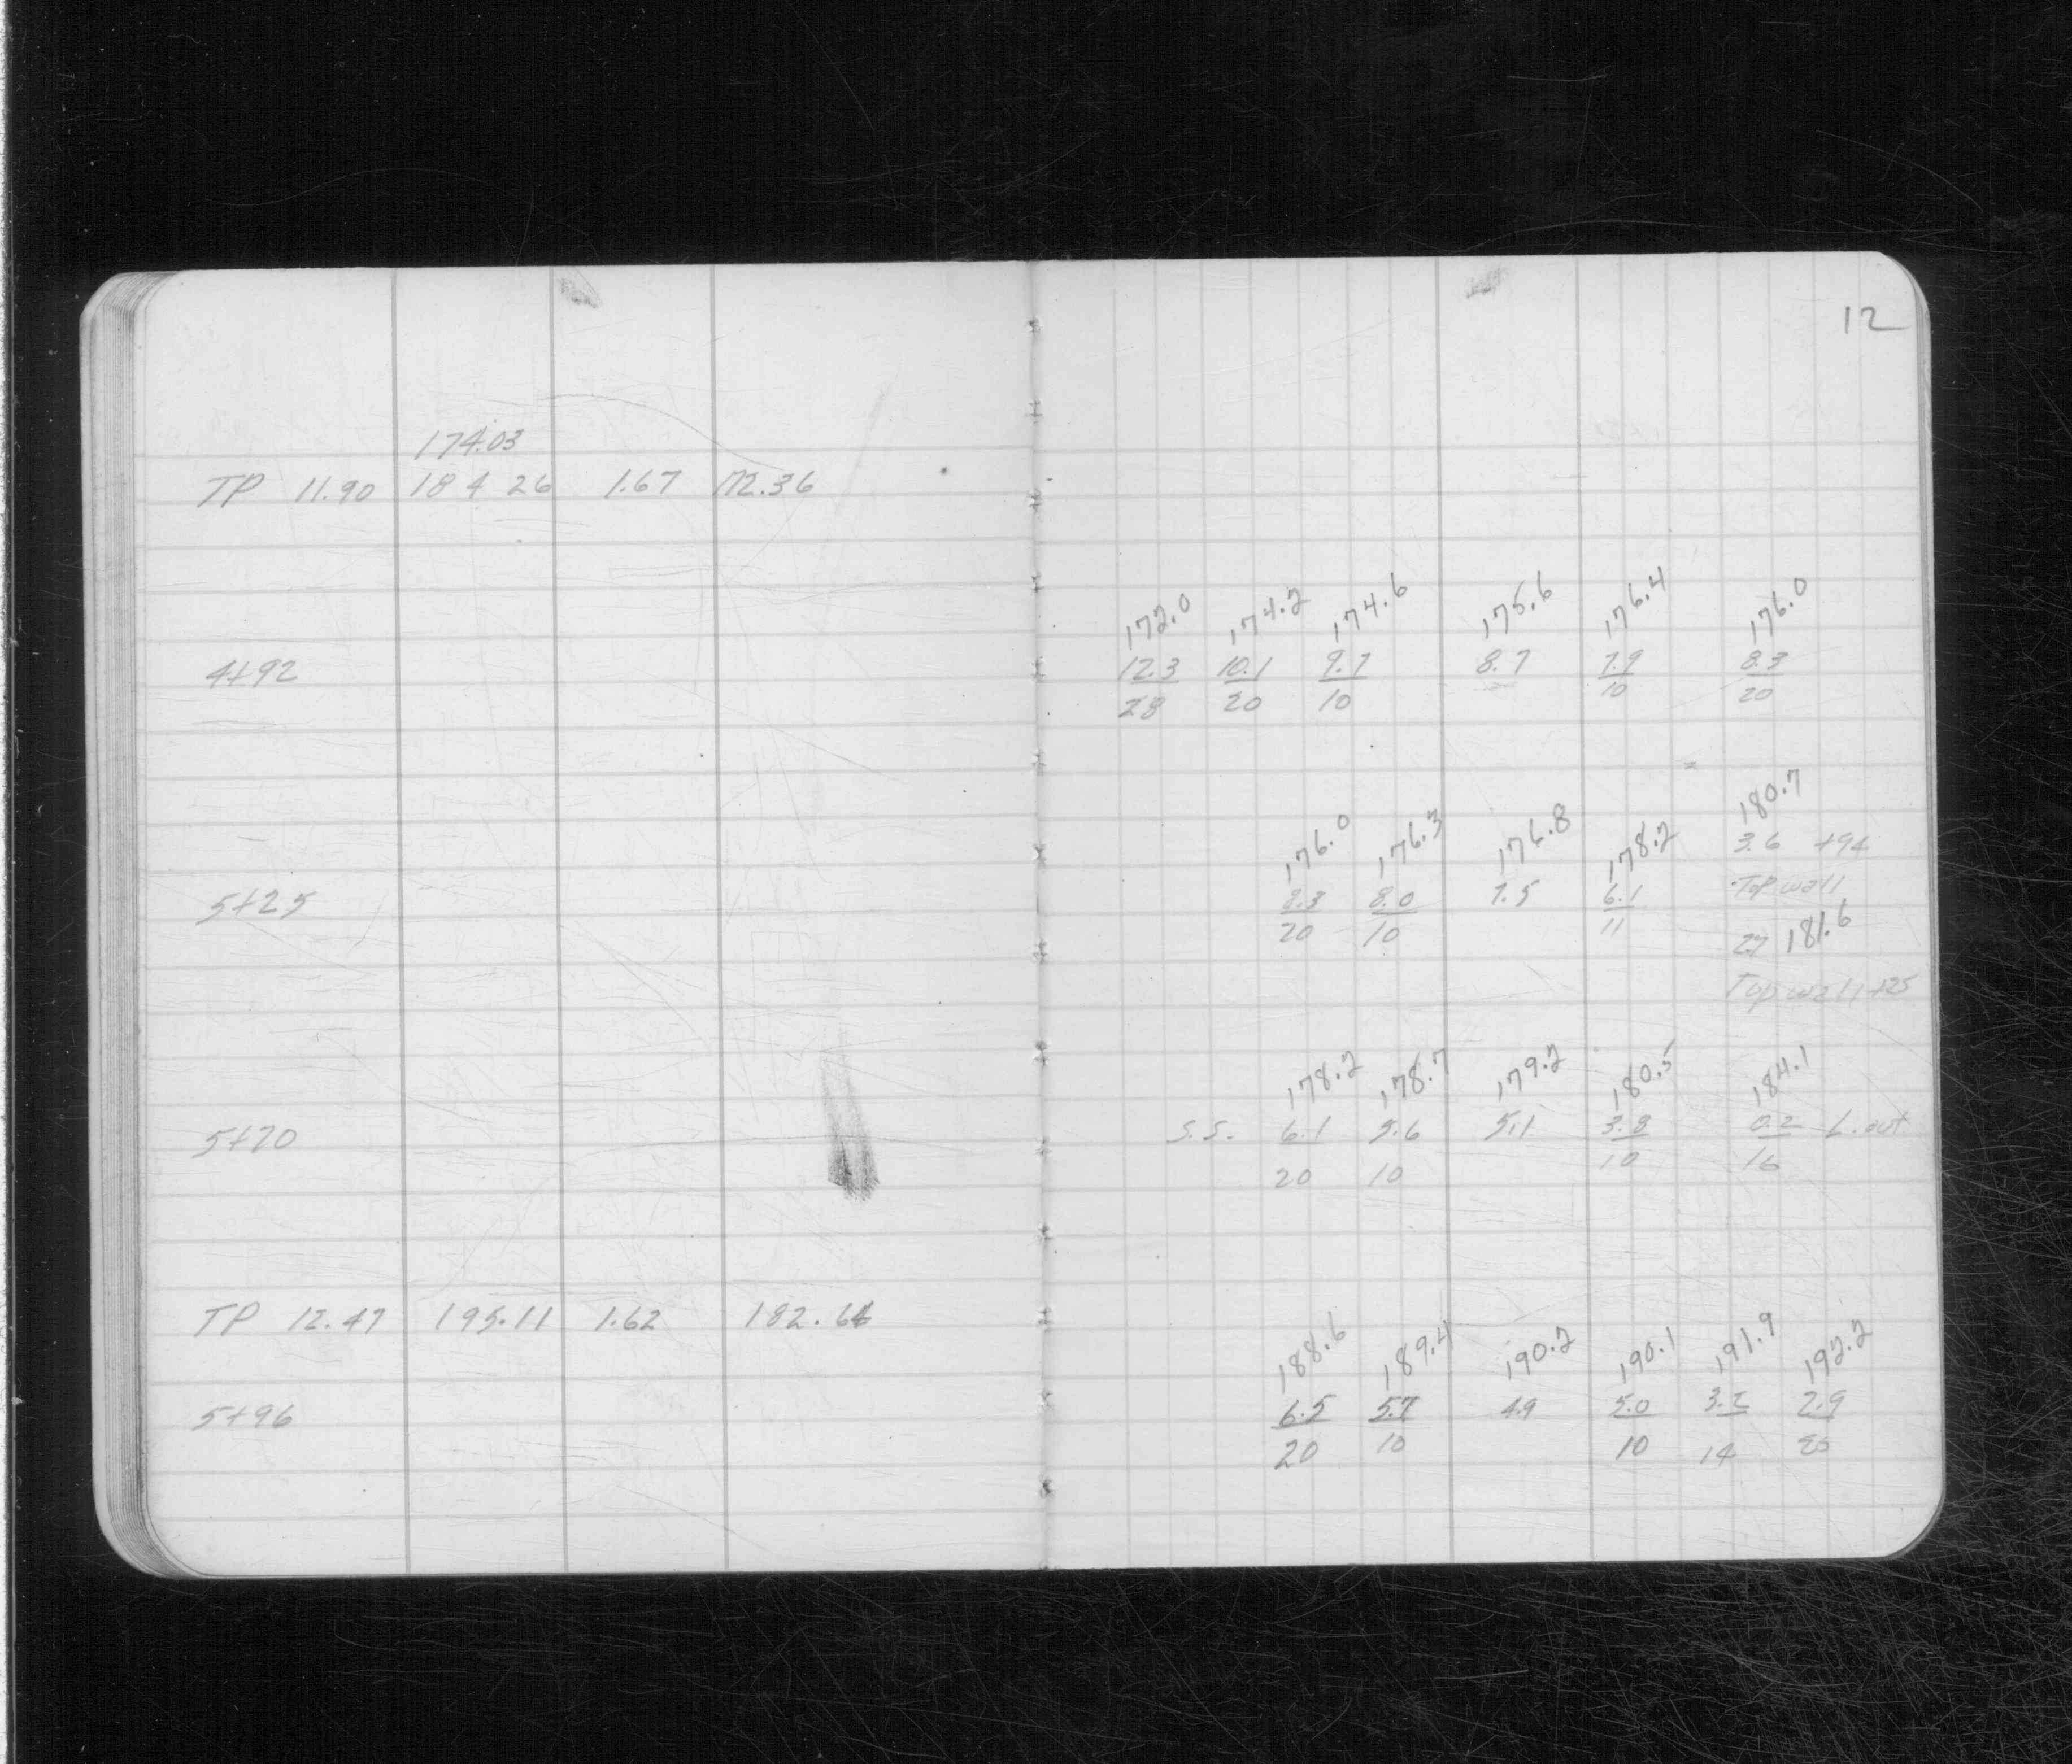 12
174.03
TP 11.90 184 26 1.67 172.36
172.0 174.2 174.6 175.6 176.4 176.0
4+92 12.3 10.1 9.7 8.7 7.9 8.3
28 20 10 10 20
180.7
176.0 176.3 176.8 178.2 3.6 +94
5+25 8.3 8.0 7.5 6.1 Top wall
20 10 11 2.7 181.6
Top wall +25
178.2 178.7 179.2 180.5 184.1
5+70 S.S. 6.1 5.6 5.1 3.8 0.2 L. out
20 10 10 16
TP 12.47 195.11 1.62 182.64
188.6 189.4 190.2 190.1 191.9 192.2
5+96 6.5 5.7 4.9 5.0 3.2 2.9
20 10 10 14